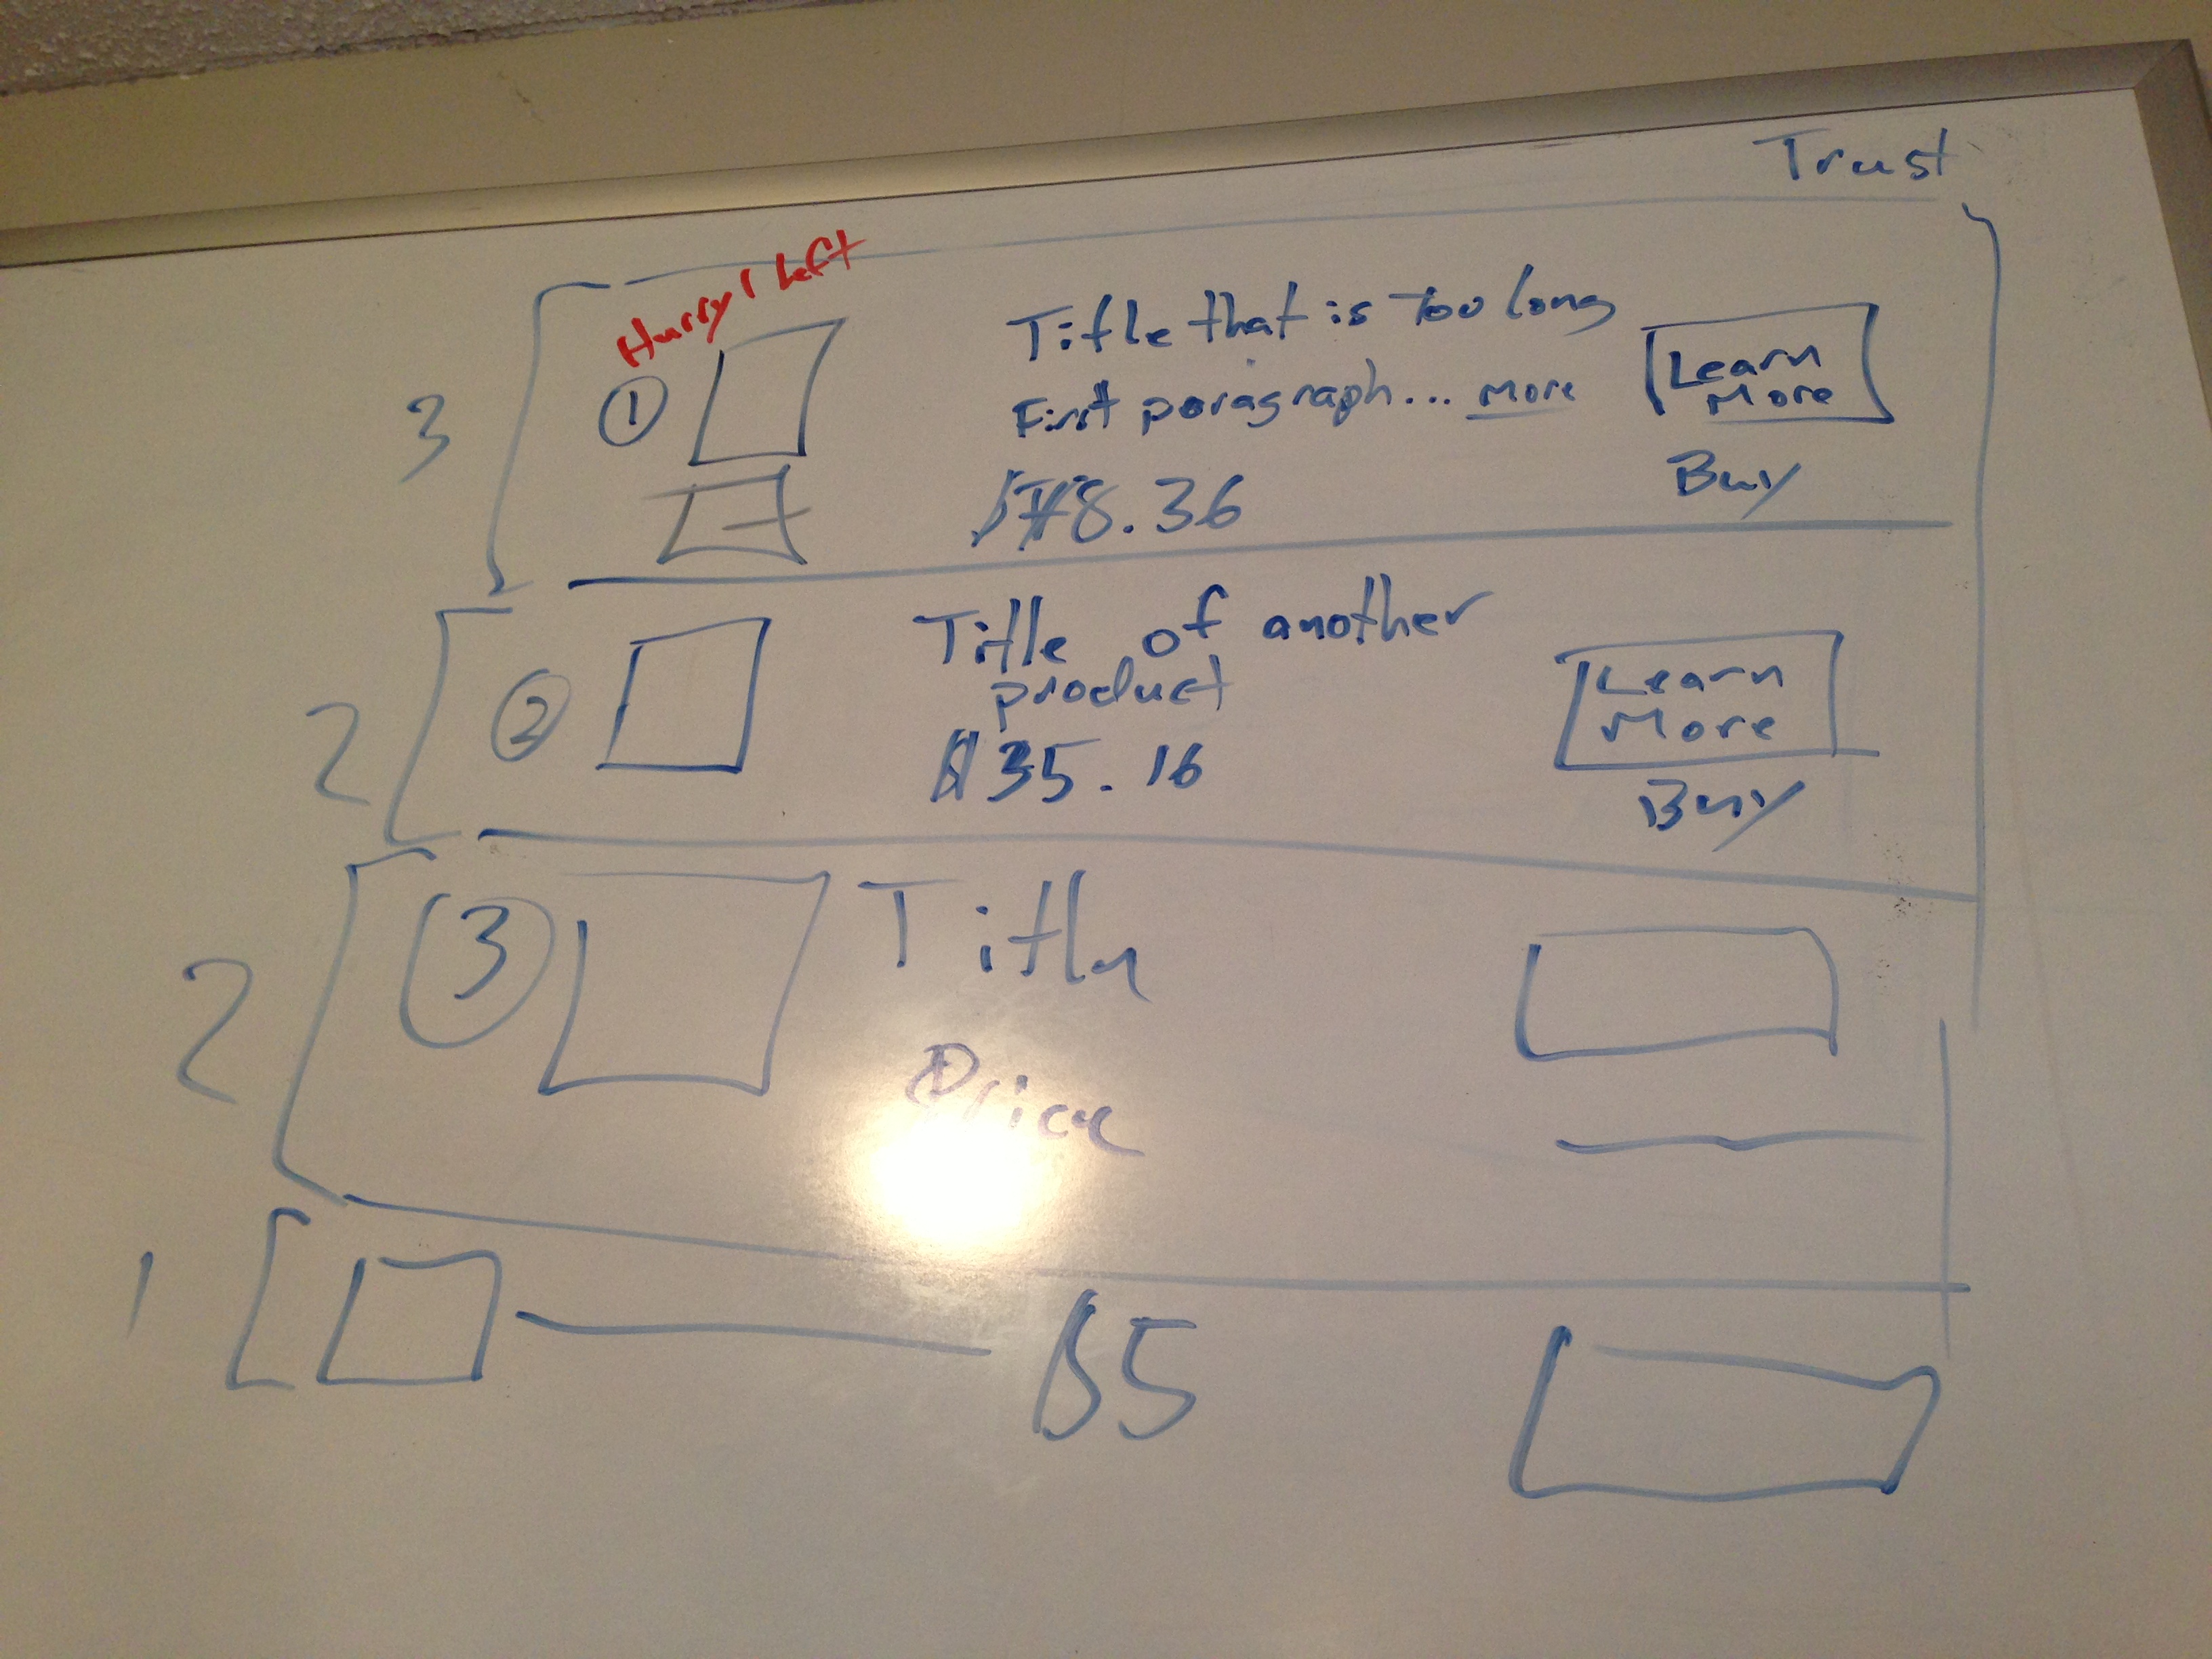 Trust
Hurry 1 Left
3
1
Title that is Too long
First paragraph... more
8.36
Learn
More
Buy
2
2
Title of another
product
$35.16
Learn
More
Buy
2
3
Title
Price
1
$5